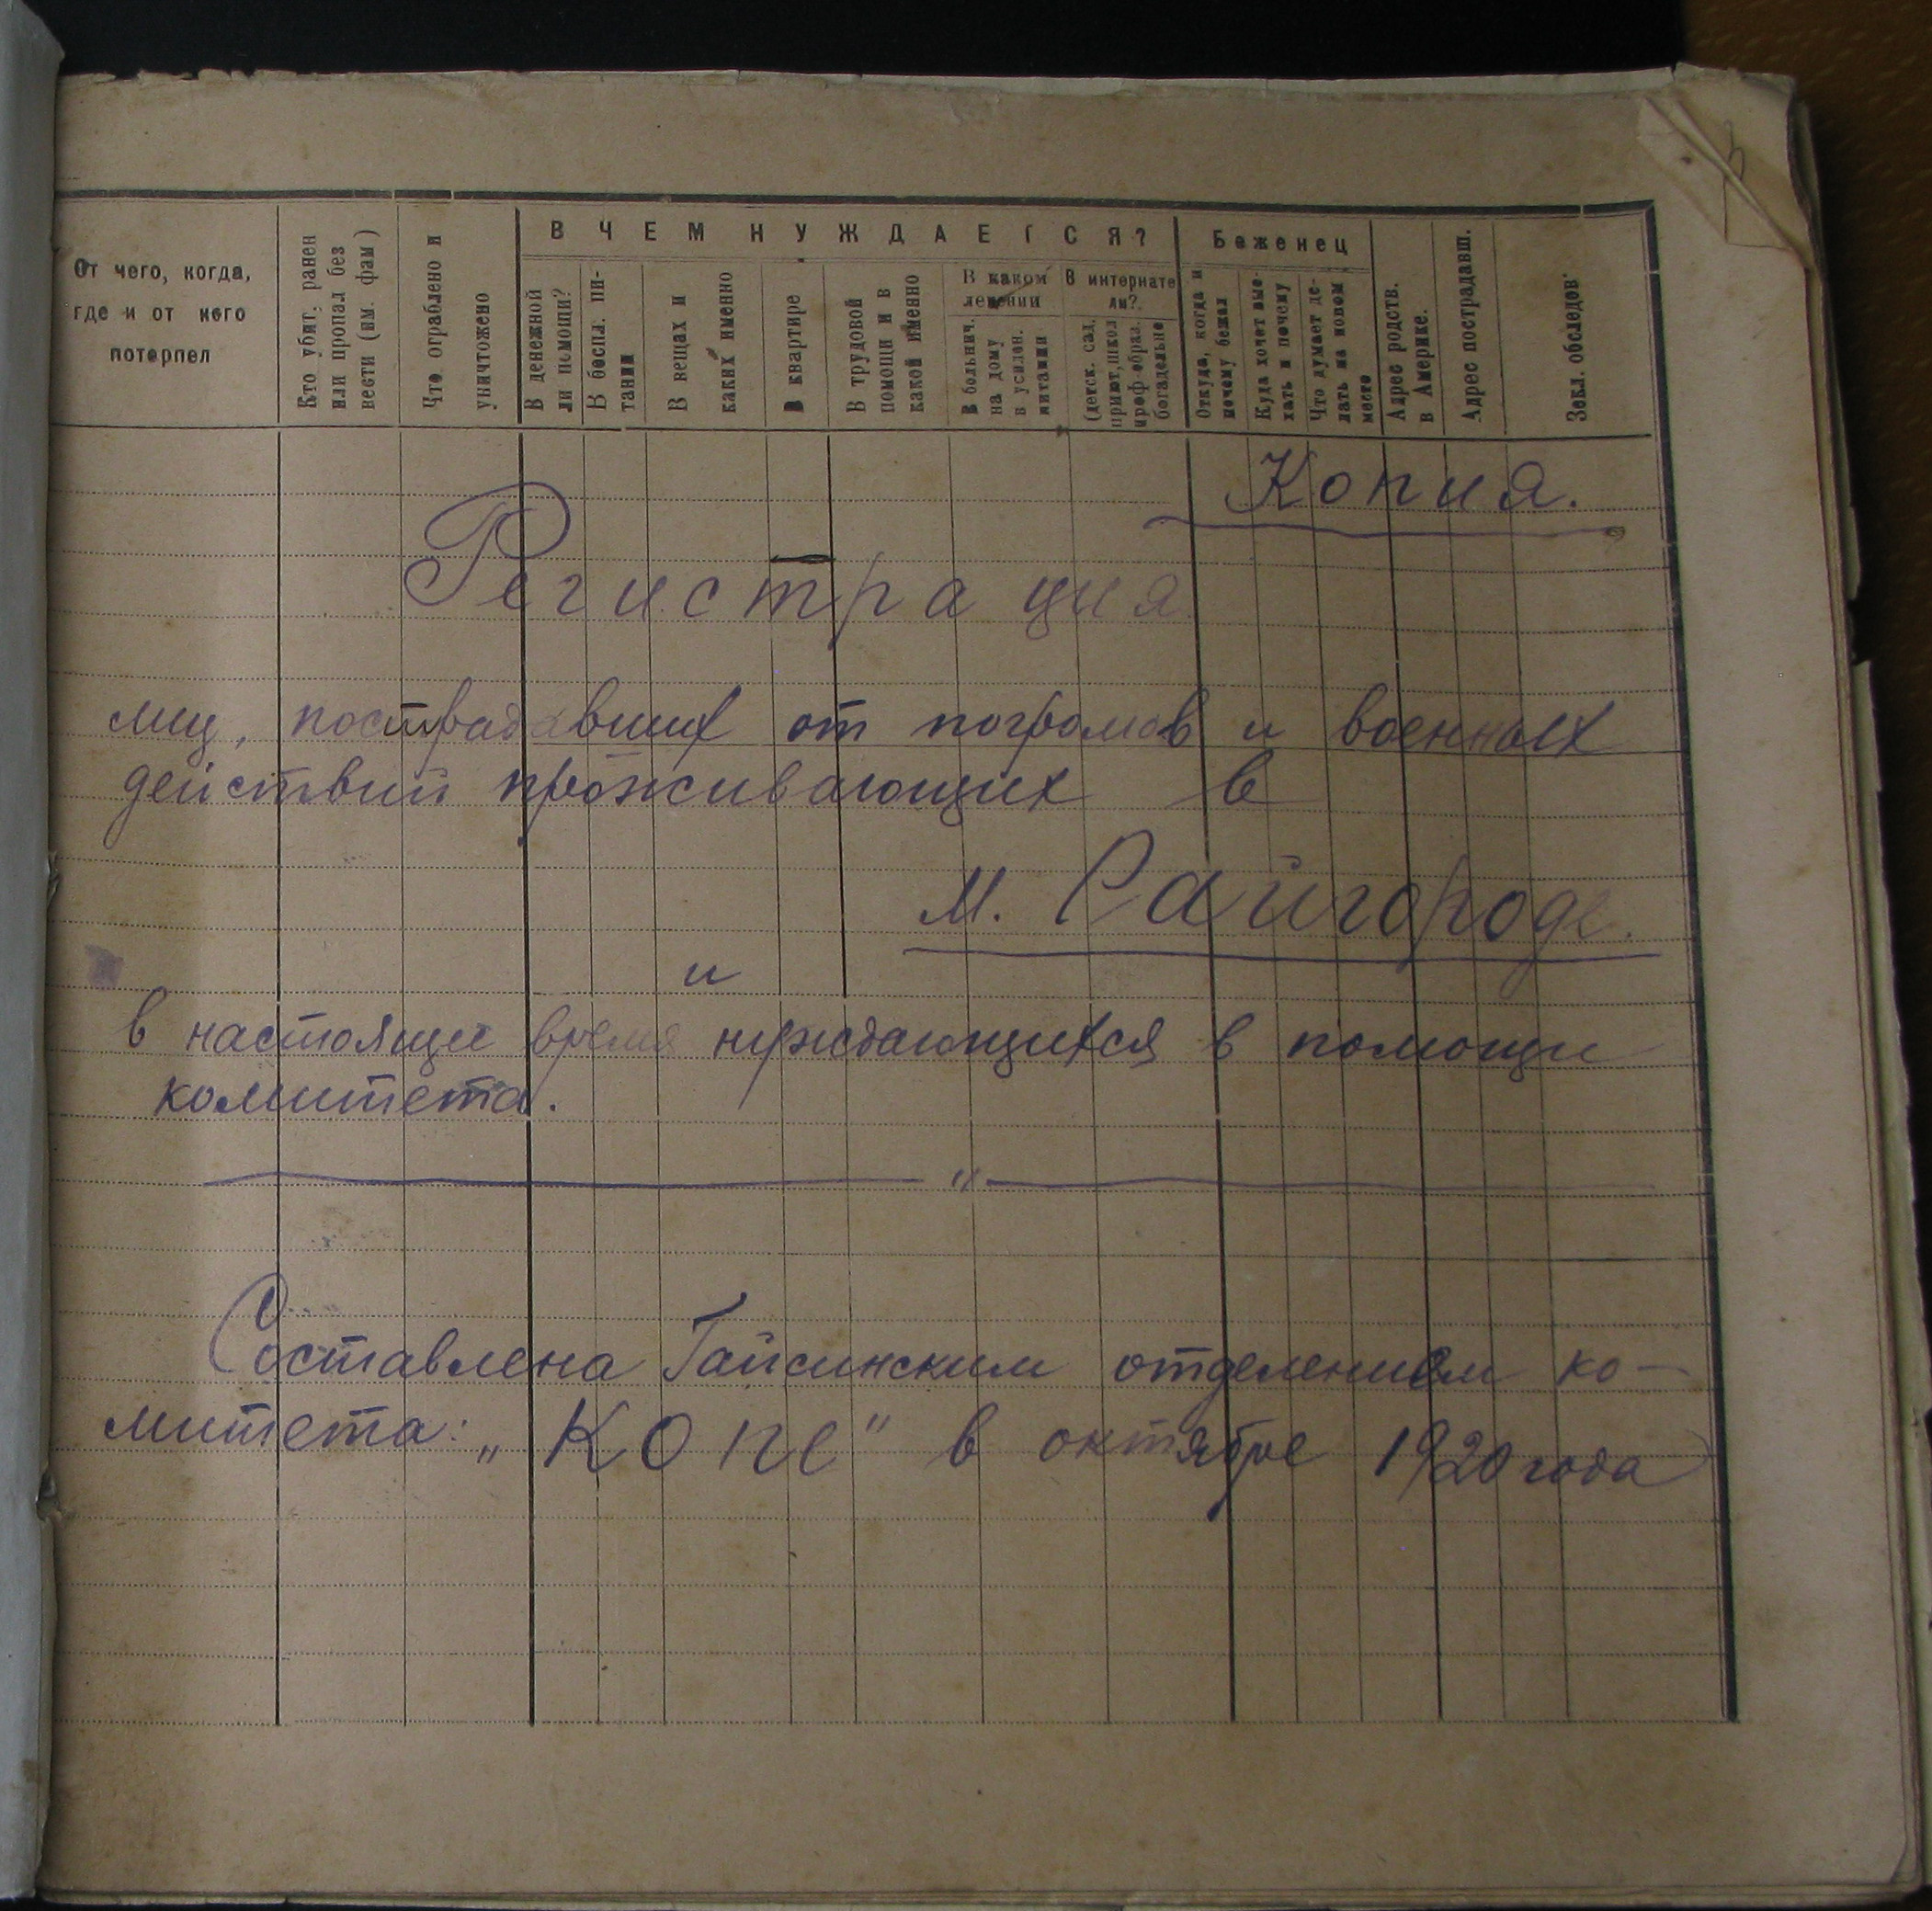 От чего, когда,
где и от кого
потерпел
Кто убит, ранен
или пропал без
вести (им. фам)
Что ограблено и
уничтожено
В ЧЕМ НУЖДАЕТСЯ?
В денежной
ли помощи?
В беспл. пи-
тании
В вещах и
каких именно
В квартире
В трудовой
помощи и в
какой именно
В каком
лечении
В больнич.
на дому
в усилен.
питании
В интернате
ли?
(детск. сад,
приют, школ
проф-образ.
богадельне
Беженец
Откуда, когда и
почему бежал
Куда хочет вые-
хать и почему
Что думает де-
лать на новом
месте
Адрес родств.
в Америке.
Адрес пострадавш.
Закл. обследов.
Копия.
Регистрация
лиц, пострадавших от погромов и военных
действий проживающих в
м. Райгороде.
и
в настоящее время нуждающихся в помощи
комитета.
"
Составлена Гайсинским отделением ко-
митета: „Копе" в октябре 1920 года